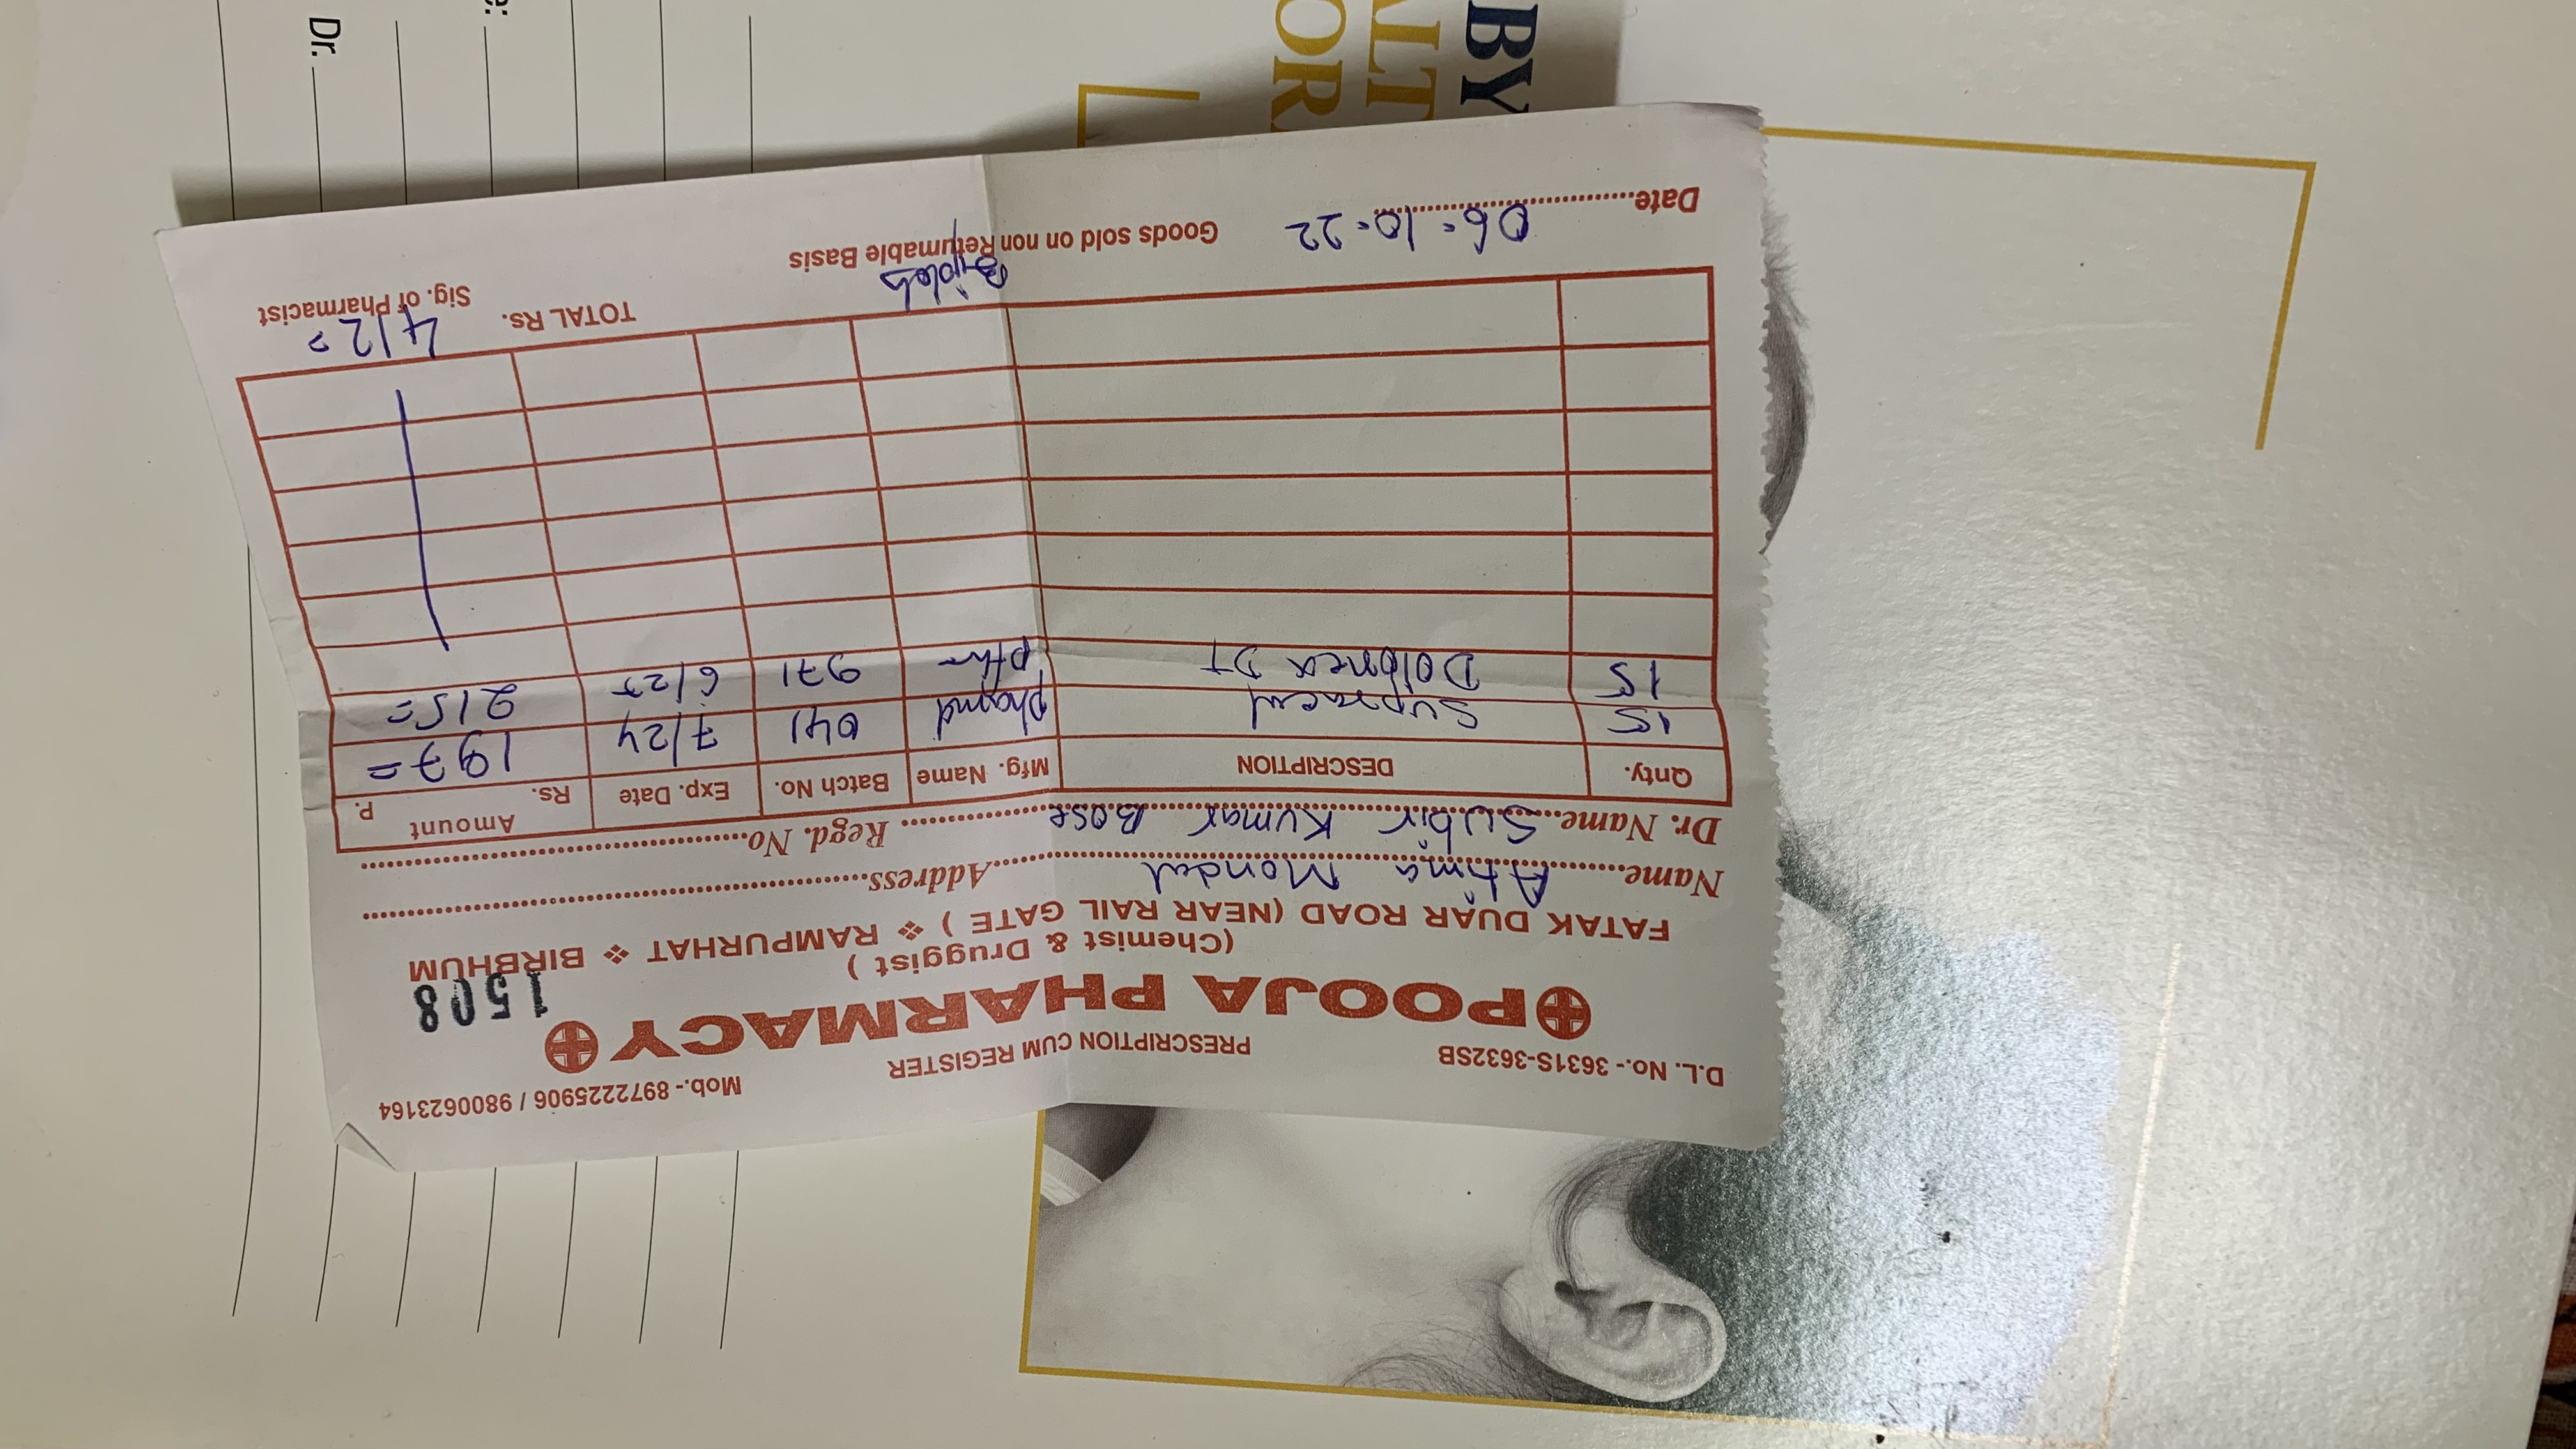 D.L. No.- 3631S-3632SB PRESCRIPTION CUM REGISTER Mob.- 8972225906 / 9800623164
POOJA PHARMACY
1508
(Chemist & Druggist )
FATAK DUAR ROAD (NEAR RAIL GATE ) ❖ RAMPURHAT ❖ BIRBHUM
Name Atima Mondal Address
Dr. Name Subir Kumar Bose Regd. No.
Qnty. DESCRIPTION Mfg. Name Batch No. Exp. Date Amount Rs. P.
15 Supracal 041 7/24 197=
15 DT 971 215=
TOTAL Rs. 412=
Date 06-10-22 Goods sold on non Returnable Basis
Sig. of Pharmacist
Dr.
BY
ALT
OR